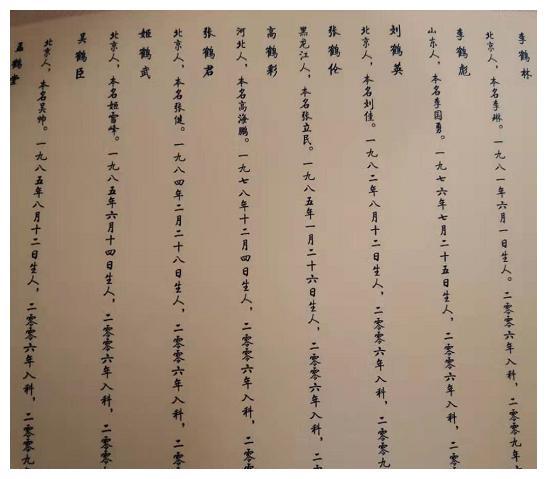 李鹤林
北京人，本名李琳。一九八一年六月一日生人。二零零六年入科，二零零九年
李鹤彪
山东人，本名李国勇。一九七六年七月二十五日生人，二零零六年入科，二零
刘鹤英
北京人，本名刘佳。一九八二年八月十二日生人，二零零六年入科，二零零
张鹤伦
黑龙江人，本名张立民。一九八五年一月二十六日生人，二零零六年入科，
高鹤彩
河北人，本名高海鹏。一九七八年十二月四日生人，二零零六年入科，二零零
张鹤君
北京人，本名张健。一九八四年二月二十八日生人，二零零六年入科，二零
姬鹤武
北京人，本名姬雪峰。一九八五年六月十四日生人，二零零六年入科，二零零
吴鹤臣
北京人，本名吴帅。一九八五年八月十二日生人，二零零六年入科，二零零九
孟鹤堂